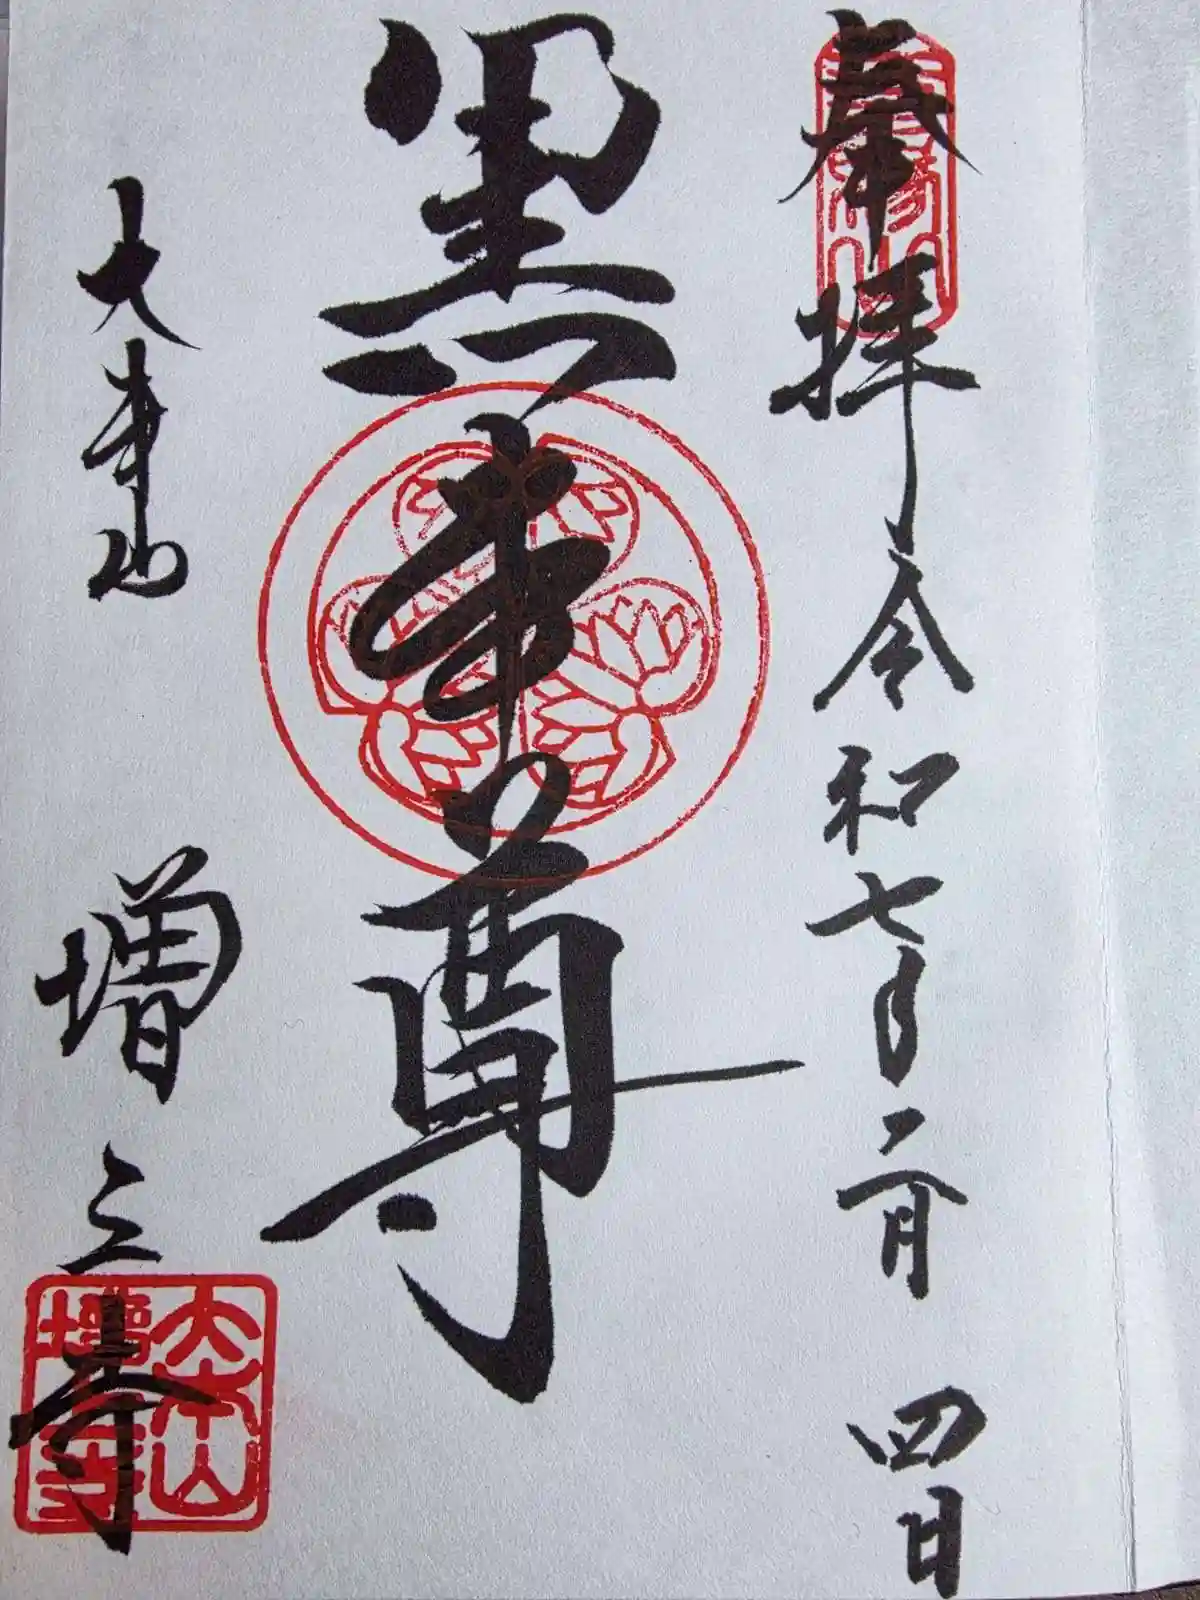 奉拝 令和七年二月四日
三縁山
黒本尊
大本山 増上寺
大本山
増上寺